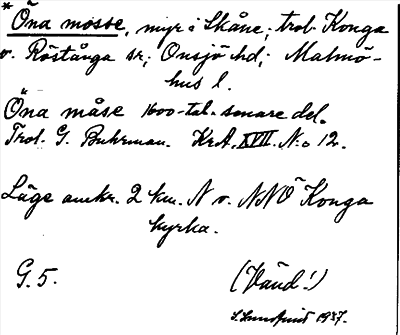 * Öna mosse, myr i Skåne; trol. Konga
o. Röstånga sr; Onsjö hd; Malmö-
hus l.
Öna måse 1600-tal. senare del.
Trol. G. Buhrman. KrA, XVII. N:o 12.
Läge omkr. 2 km. N v. NNÖ Konga
kyrka.
G. 5.
(Vänd!)
1937.